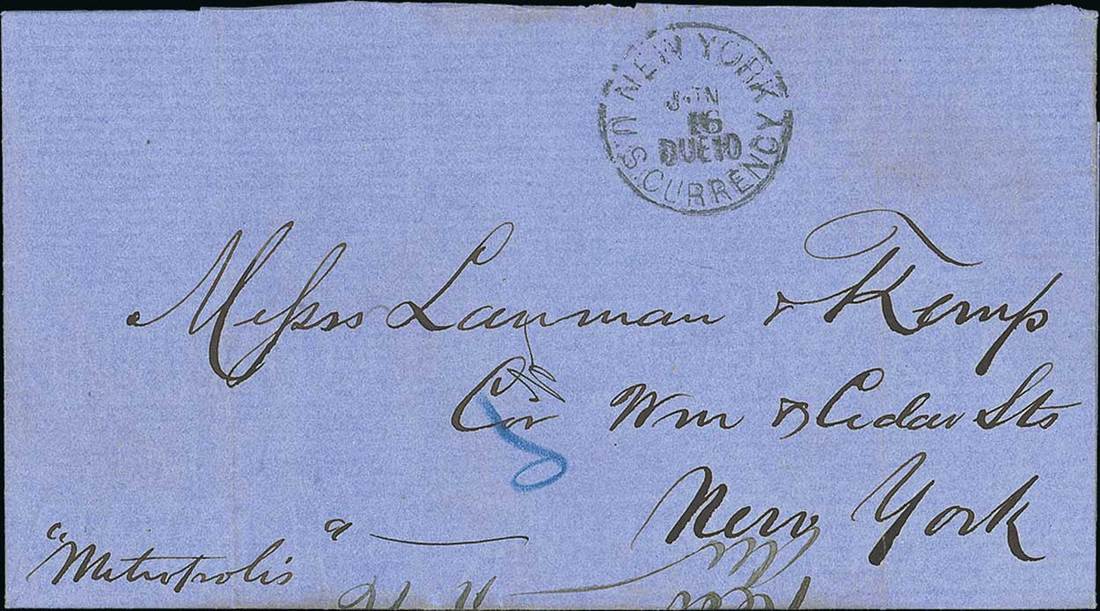 NEW YORK
JAN
16
DUE 10
U.S. CURRENCY
Messrs Lanman & Kemp
Cor Wm & Cedar Sts
New York
"Metropolis"